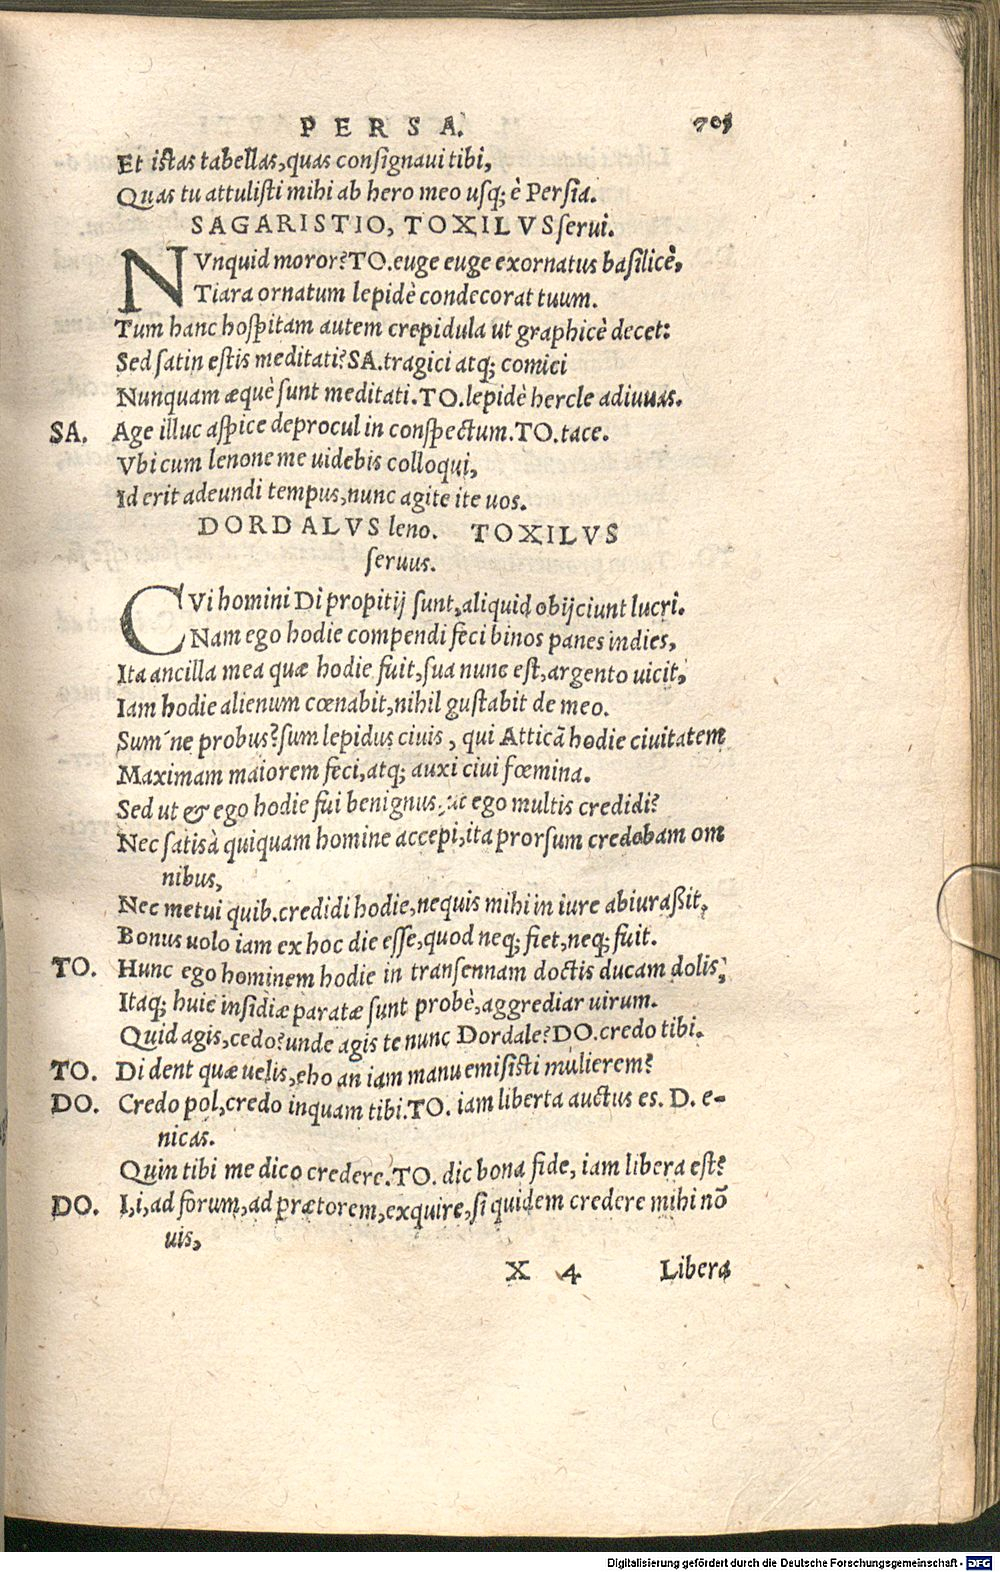 PERSA. 705
Et istas tabellas, quas consignaui tibi,
Quas tu attulisti mihi ab hero meo usq; è Persia.
SAGARISTIO, TOXILVS serui.
NVnquid moror? TO. euge euge exornatus basilicè,
Tiara ornatum lepidè condecorat tuum.
Tum hanc hospitam autem crepidula ut graphicè decet:
Sed satin estis meditati? SA. tragici atq; comici
Nunquam æquè sunt meditati. TO. lepidè hercle adiuuas.
SA. Age illuc aspice deprocul in conspectum. TO. tace.
Vbi cum lenone me uidebis colloqui,
Id erit adeundi tempus, nunc agite ite uos.
DORDALVS leno. TOXILVS
seruus.
CVi homini Di propitij sunt, aliquid obijciunt lucri.
Nam ego hodie compendi feci binos panes indies,
Ita ancilla mea quæ hodie fuit, sua nunc est, argento uicit,
Iam hodie alienum cœnabit, nihil gustabit de meo.
Sum'ne probus? sum lepidus ciuis, qui Atticã hodie ciuitatem
Maximam maiorem feci, atq; auxi ciui fœmina.
Sed ut & ego hodie fui benignus, ut ego multis credidi?
Nec satis à quiquam homine accepi, ita prorsum credebam om
nibus,
Nec metui quib. credidi hodie, nequis mihi in iure abiurassit,
Bonus uolo iam ex hoc die esse, quod neq; fiet, neq; fuit.
TO. Hunc ego hominem hodie in transennam doctis ducam dolis,
Itaq; huic insidiæ paratæ sunt probè, aggrediar uirum.
Quid agis, cedo? unde agis te nunc Dordale? DO. credo tibi.
TO. Di dent quæ uelis, eho an iam manu emisisti mulierem?
DO. Credo pol, credo inquam tibi. TO. iam liberta auctus es. D. e-
nicas.
Quin tibi me dico credere. TO. dic bona fide, iam libera est?
DO. I, i, ad forum, ad prætorem, exquire, si quidem credere mihi nõ
uis,
X 4 Libera
Digitalisierung gefördert durch die Deutsche Forschungsgemeinschaft - DFG